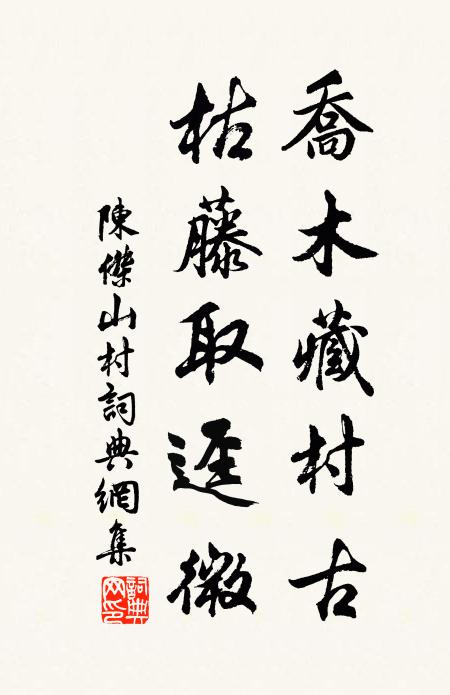 喬木藏村古
枯藤取逕微
陳傑山村詞典網集
詞典网印